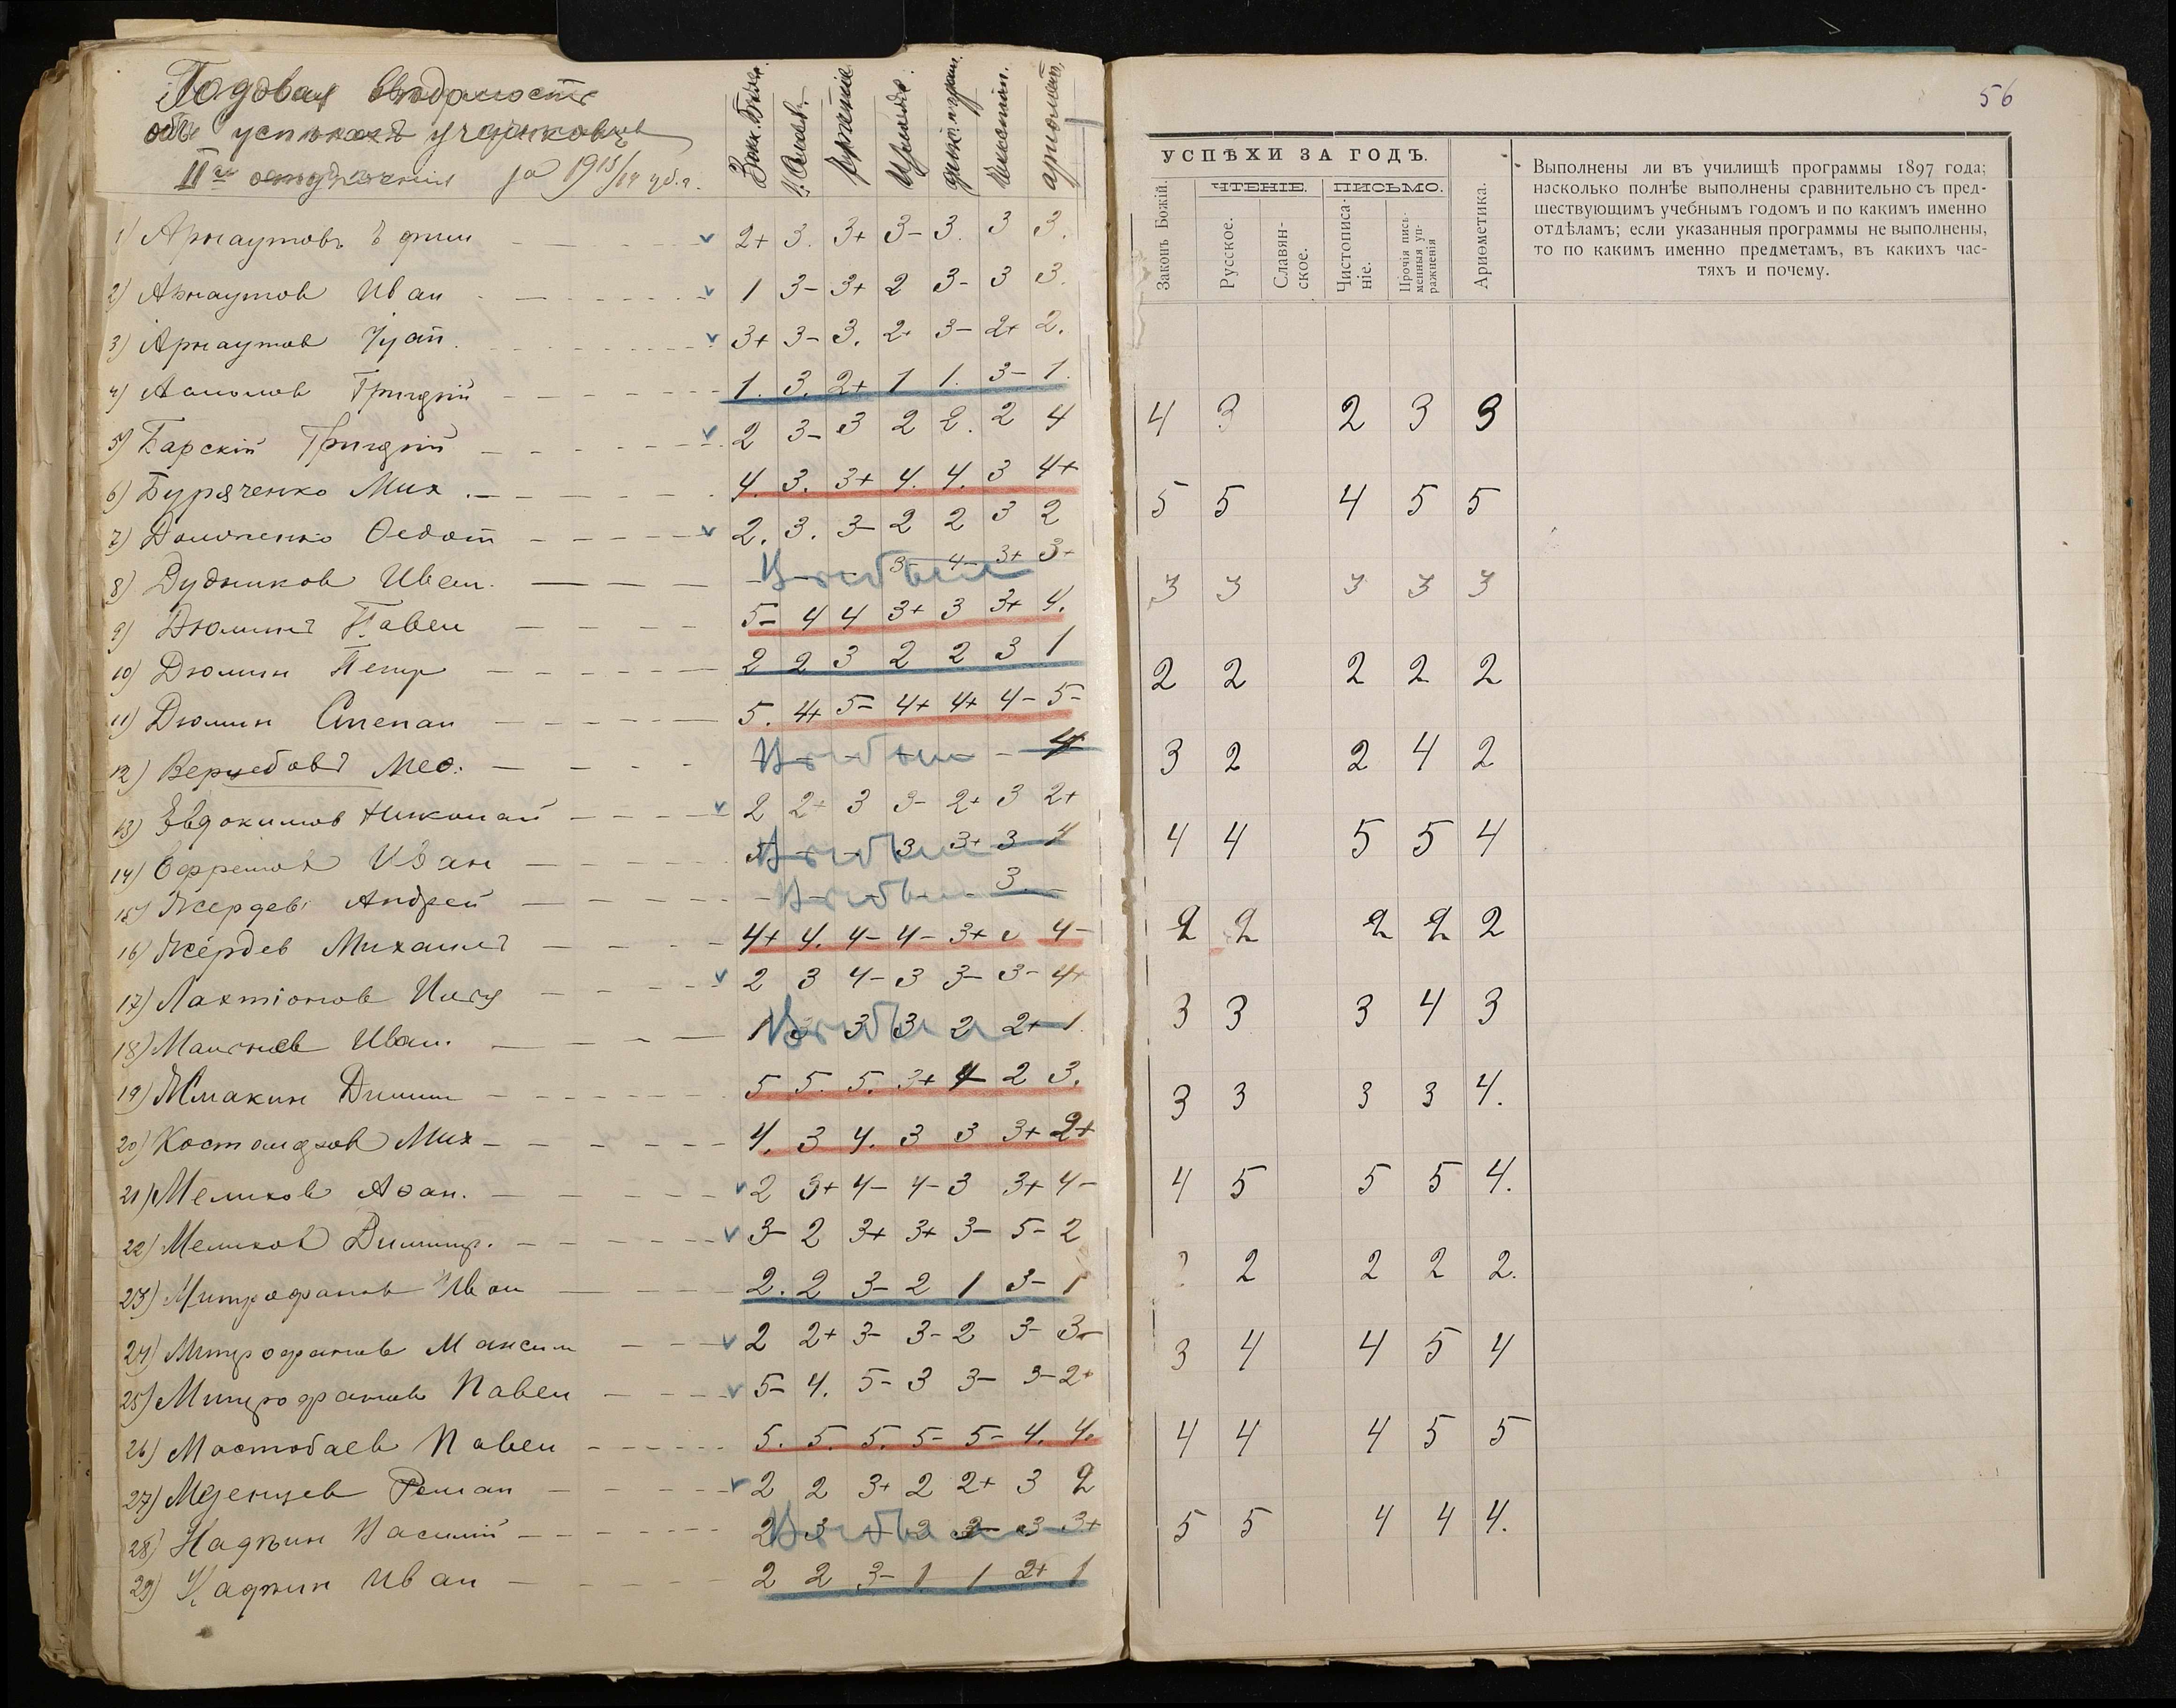 Годовая Ведомость
объ успѣхахъ учениковъ
IIго отдѣленія за 1913/14 уб.г.
Зак. Бож. Ц. Слав. Чтеніе диктант. Чистопис. ариѳмет.
1) Арнаутовъ Ефим 2+ 3. 3+ 3- 3. 3 3.
2) Арнаутов Иван 1 3- 3+ 2 3- 3 3.
3) Арнаутов 3+ 3- 3. 2+ 3- 2+ 2.
4) Григорій 1. 3. 2+ 1 1. 3- 1.
5) Барскій Григорій 2 3- 3 2 2. 2 4
6) Буряченко Мих. 4. 3. 3+ 4. 4. 3 4+
7) Ѳедот 2. 3. 3- 2 2 3 2
8) Дудников Иван. Выбыл 3- 4- 3+ 3-
9) Дюминъ Павел 5- 4 4 3+ 3 3+ 4.
10) Дюмин Петр 2 2 3 2 2 3 1
11) Дюмин Степан 5. 4+ 5- 4+ 4+ 4- 5-
12) Выбыл 4
13) Евдокимов Николай 2 2+ 3 3- 2+ 3 2+
14) Ефремов Иван Выбыл 3 3+ 3 4
15) Жердев Андрей Выбыл 3.
16) Жердев Михаилъ 4+ 4. 4- 4- 3+ 4-
17) Лахтіонов Илья 2 3 4- 3 3- 3- 4+
18) Иван. Выбыл 1 3 3 3 2 2+ 1.
19) Димит 5 5. 5. 3+ 4 2 3.
20) Мих 4. 3 4. 3 3 3+ 2+
21) Мелихов Аѳан. 2 3+ 4- 4- 3 3+ 4-
22) Мелихов Димитр. 3- 2 3+ 3+ 3- 5- 2
23) Митрофанов Иван 2. 2 3- 2 1 3- 1
24) Митрофанов Максим 2 2+ 3- 3- 2 3- 3-
25) Митрофанов Павел 5- 4. 5- 3 3- 3- 2+
26) Мастобаев Павел 5. 5. 5. 5- 5- 4. 4.
27) Роман 2 2 3+ 2 2+ 3 2
28) Надѣин Василій Выбыл 2 3 3 3- 3 3+
29) Надѣин Иван 2 2 3- 1 1 2+ 1
56
УСПѢХИ ЗА ГОДЪ.
ЧТЕНІЕ. ПИСЬМО.
Законъ Божій.
Русское.
Славян-
ское.
Чистописа-
ніе.
Прочія пись-
менныя уп-
ражненія
Ариѳметика.
Выполнены ли въ училищѣ программы 1897 года;
насколько полнѣе выполнены сравнительно съ пред-
шествующимъ учебнымъ годомъ и по какимъ именно
отдѣламъ; если указанныя программы не выполнены,
то по какимъ именно предметамъ, въ какихъ час-
тяхъ и почему.
4 3 2 3 3
5 5 4 5 5
3 3 3 3 3
2 2 2 2 2
3 2 2 4 2
4 4 5 5 4
2 2 2 2 2
3 3 3 4 3
3 3 3 3 4.
4 5 5 5 4.
2 2 2 2.
3 4 4 5 4
4 4 4 5 5
5 5 4 4 4.